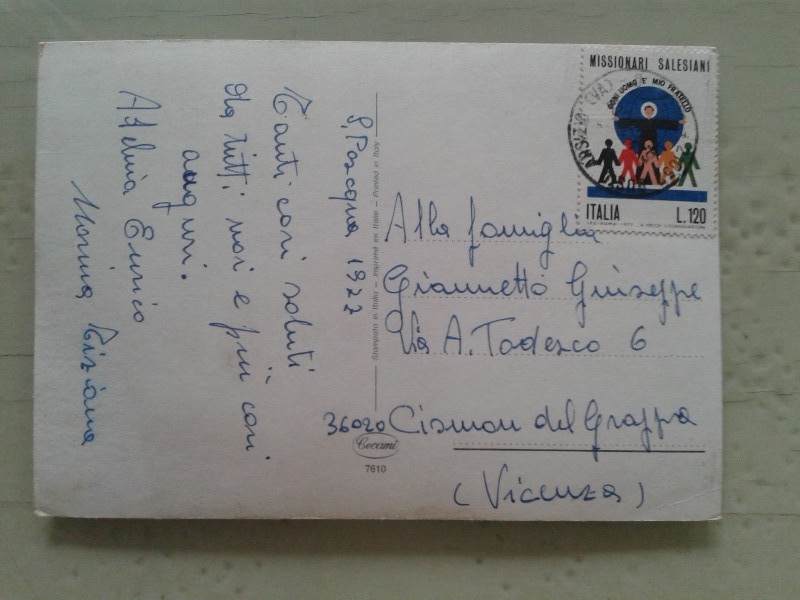 Tanti cari saluti
da tutti noi e più cari
auguri.
Adelina Enrico
Marina Tiziana
S. Pasqua 1977
Stampato in Italia — Imprimé en Italie — Printed in Italy
MISSIONARI SALESIANI
OGNI UOMO E' MIO FRATELLO
ITALIA L.120
ARSIZIO (VA)
Alla famiglia
Giannetto Giuseppe
Via A. Todesco 6
36020 Cismon del Grappa
(Vicenza)
Cecami
7610